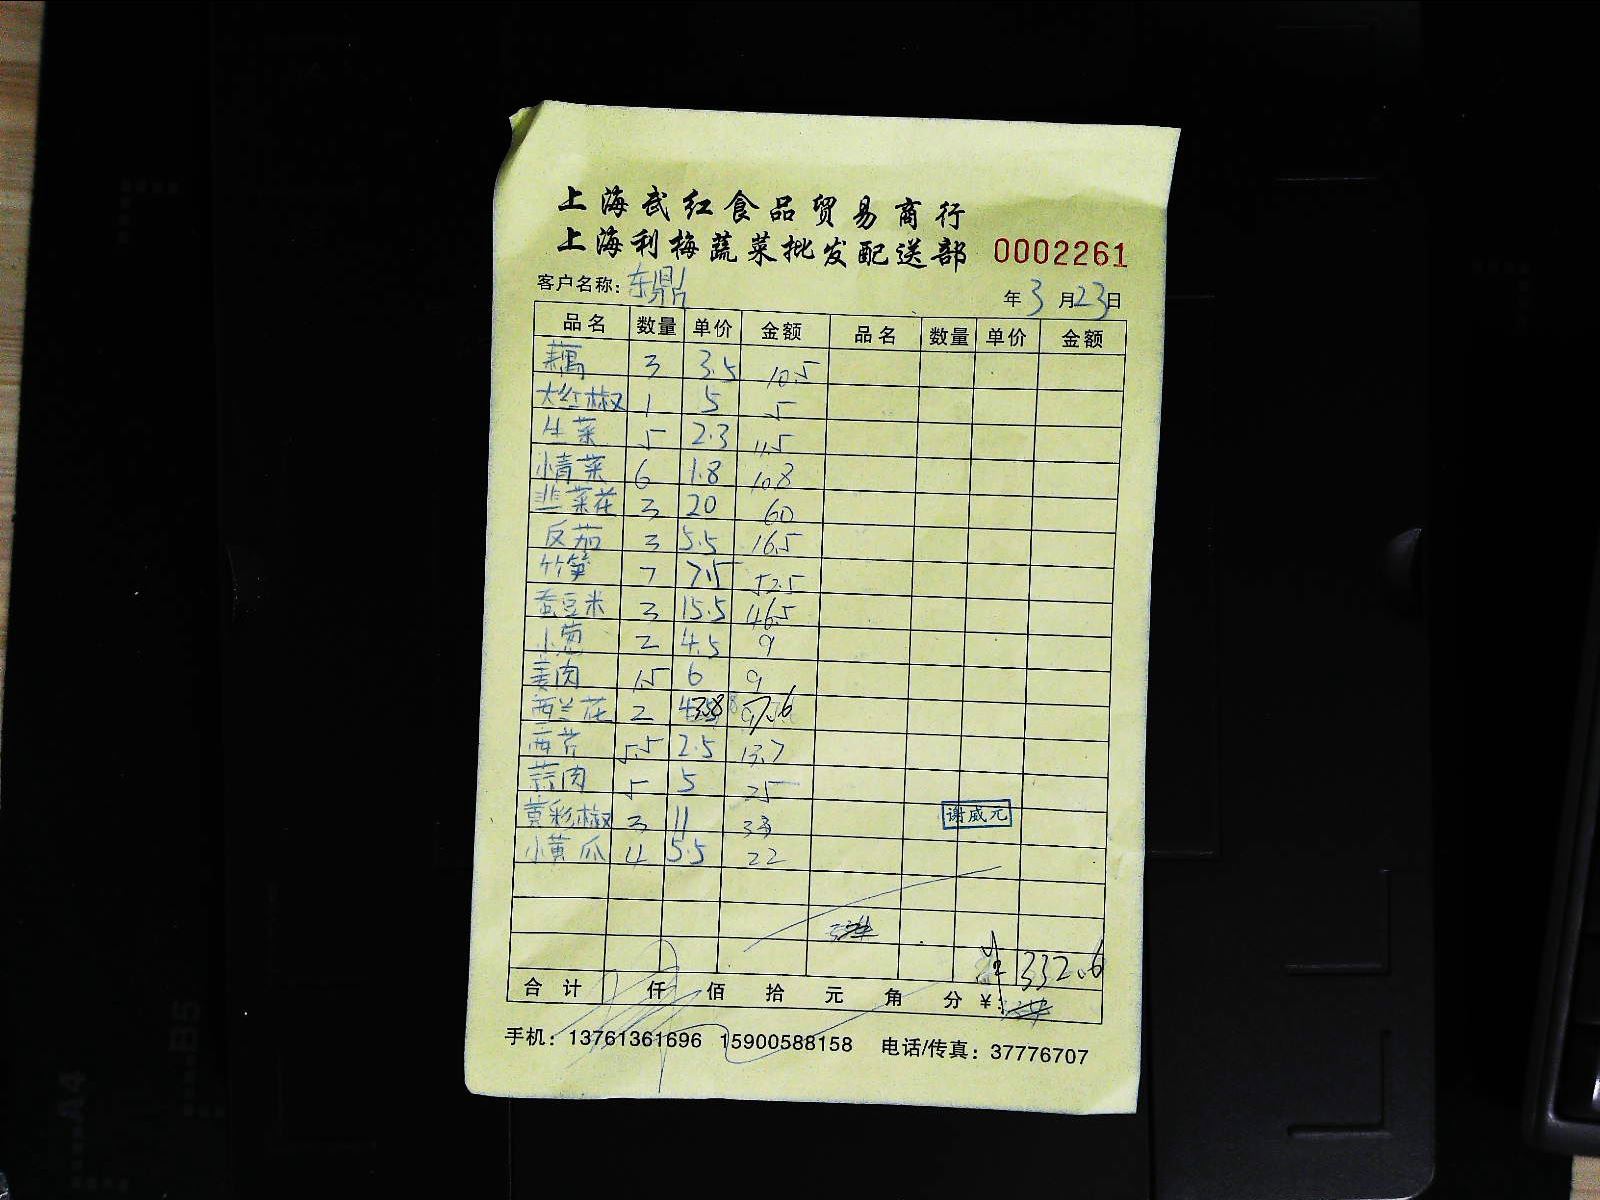 上海武红食品贸易商行
上海利梅蔬菜批发配送部 0002261
客户名称: 东鼎 年 3 月 23 日
品名 数量 单价 金额 品名 数量 单价 金额
藕 3 3.5 10.5
大红椒 1 5 5
生菜 5 2.3 11.5
小青菜 6 1.8 10.8
韭菜花 3 20 60
反茄 3 5.5 16.5
竹笋 7 7.5 52.5
蚕豆米 3 15.5 46.5
小葱 2 4.5 9
姜肉 1.5 6 9
西兰花 2 3.8 7.6
西芹 5.5 2.5 13.7
蒜肉 5 5 25
黄彩椒 3 11 33
谢威元
小黄瓜 4 5.5 22
¥332.6
合计 仟 佰 拾 元 角 分 ¥:
手机: 13761361696 15900588158 电话/传真: 37776707